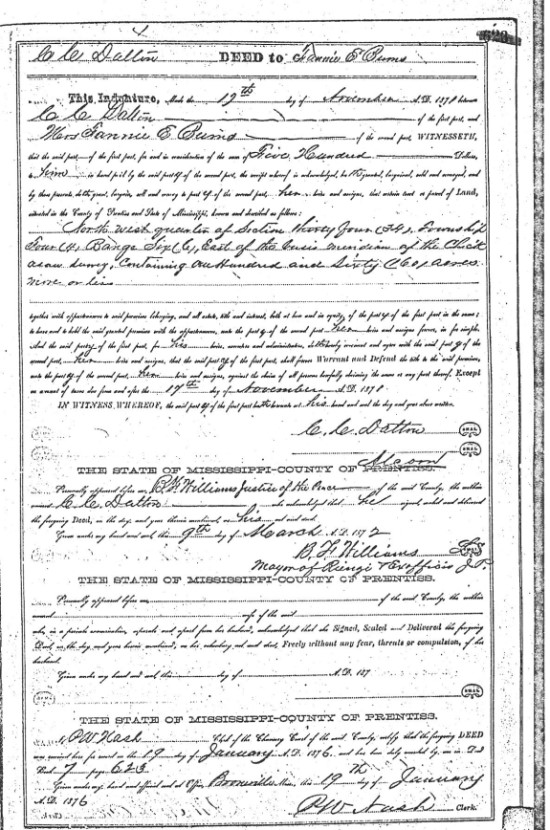 623
C C Dalton DEED to Fannie E Burns
This Indenture, Made the 19th day of November A.D. 1871 between
C C Dalton of the first part, and
Mrs Fannie E Burns of the second part, WITNESSETH,
that the said party of the first part, for and in consideration of the sum of Five Hundred Dollars,
to him in hand paid by the said party of the second part, the receipt whereof is acknowledged, has granted, bargained, sold and conveyed, and
by these presents, doth grant, bargain, sell and convey to said party of the second part, her heirs and assigns, that certain tract or parcel of Land,
situated in the County of Prentiss and State of Mississippi, known and described as follows:
North west quarter of Section Thirty Four (34), Township
Four (4), Range Six (6), East of the basis meridian of the Chick
asaw survey, Containing One Hundred and Sixty (160) acres
more or less
together with appurtenances to said premises belonging, and all estate, title and interest, both at law and in equity, of the party of the first part in the same;
to have and to hold the said granted premises with the appurtenances, unto the party of the second part her heirs and assigns forever, in fee simple.
And the said party of the first part, for his heirs, executors and administrators, doth hereby covenant and agree with the said party of the
second part, her heirs and assigns, that the said party of the first part, shall forever Warrant and Defend the title to the said premises,
unto the party of the second part, her heirs and assigns, against the claim of all persons lawfully claiming the same or any part thereof, Except
on account of taxes due from and after the 19th day of November A.D. 1871
IN WITNESS WHEREOF, the said party of the first part hereunto set his hand and seal the day and year above written.
C. C. Dalton SEAL
SEAL
THE STATE OF MISSISSIPPI-COUNTY OF PRENTISS. Alcorn
Personally appeared before me B. F. Williams Justice of the Peace of the said County, the within
named C C Dalton who acknowledged that he signed, sealed and delivered
the foregoing Deed, on the day and year therein mentioned, as his act and deed.
Given under my hand and seal, this 9th day of March A.D. 1872
B. F. Williams L.S.
Mayor of Rienzi & Exofficio J.P.
THE STATE OF MISSISSIPPI-COUNTY OF PRENTISS.
Personally appeared before me of the said County, the within
named wife of the said
who, in a private examination, separate and apart from her husband, acknowledged that she Signed, Sealed and Delivered the foregoing
Deed, on the day and year therein mentioned, as her voluntary act and deed, Freely without any fear, threats or compulsion, of her
husband.
Given under my hand and seal, this day of A.D. 187
SEAL
THE STATE OF MISSISSIPPI-COUNTY OF PRENTISS.
I, P W Nash Clerk of the Chancery Court of the said County, certify that the foregoing DEED
was received for record on the 19 day of January A.D. 1876, and has been duly recorded by me in
Book 7 page 623
Given under my hand and official seal at Office, Booneville Miss., this 19th day of January
A.D. 1876
P W Nash Clerk.